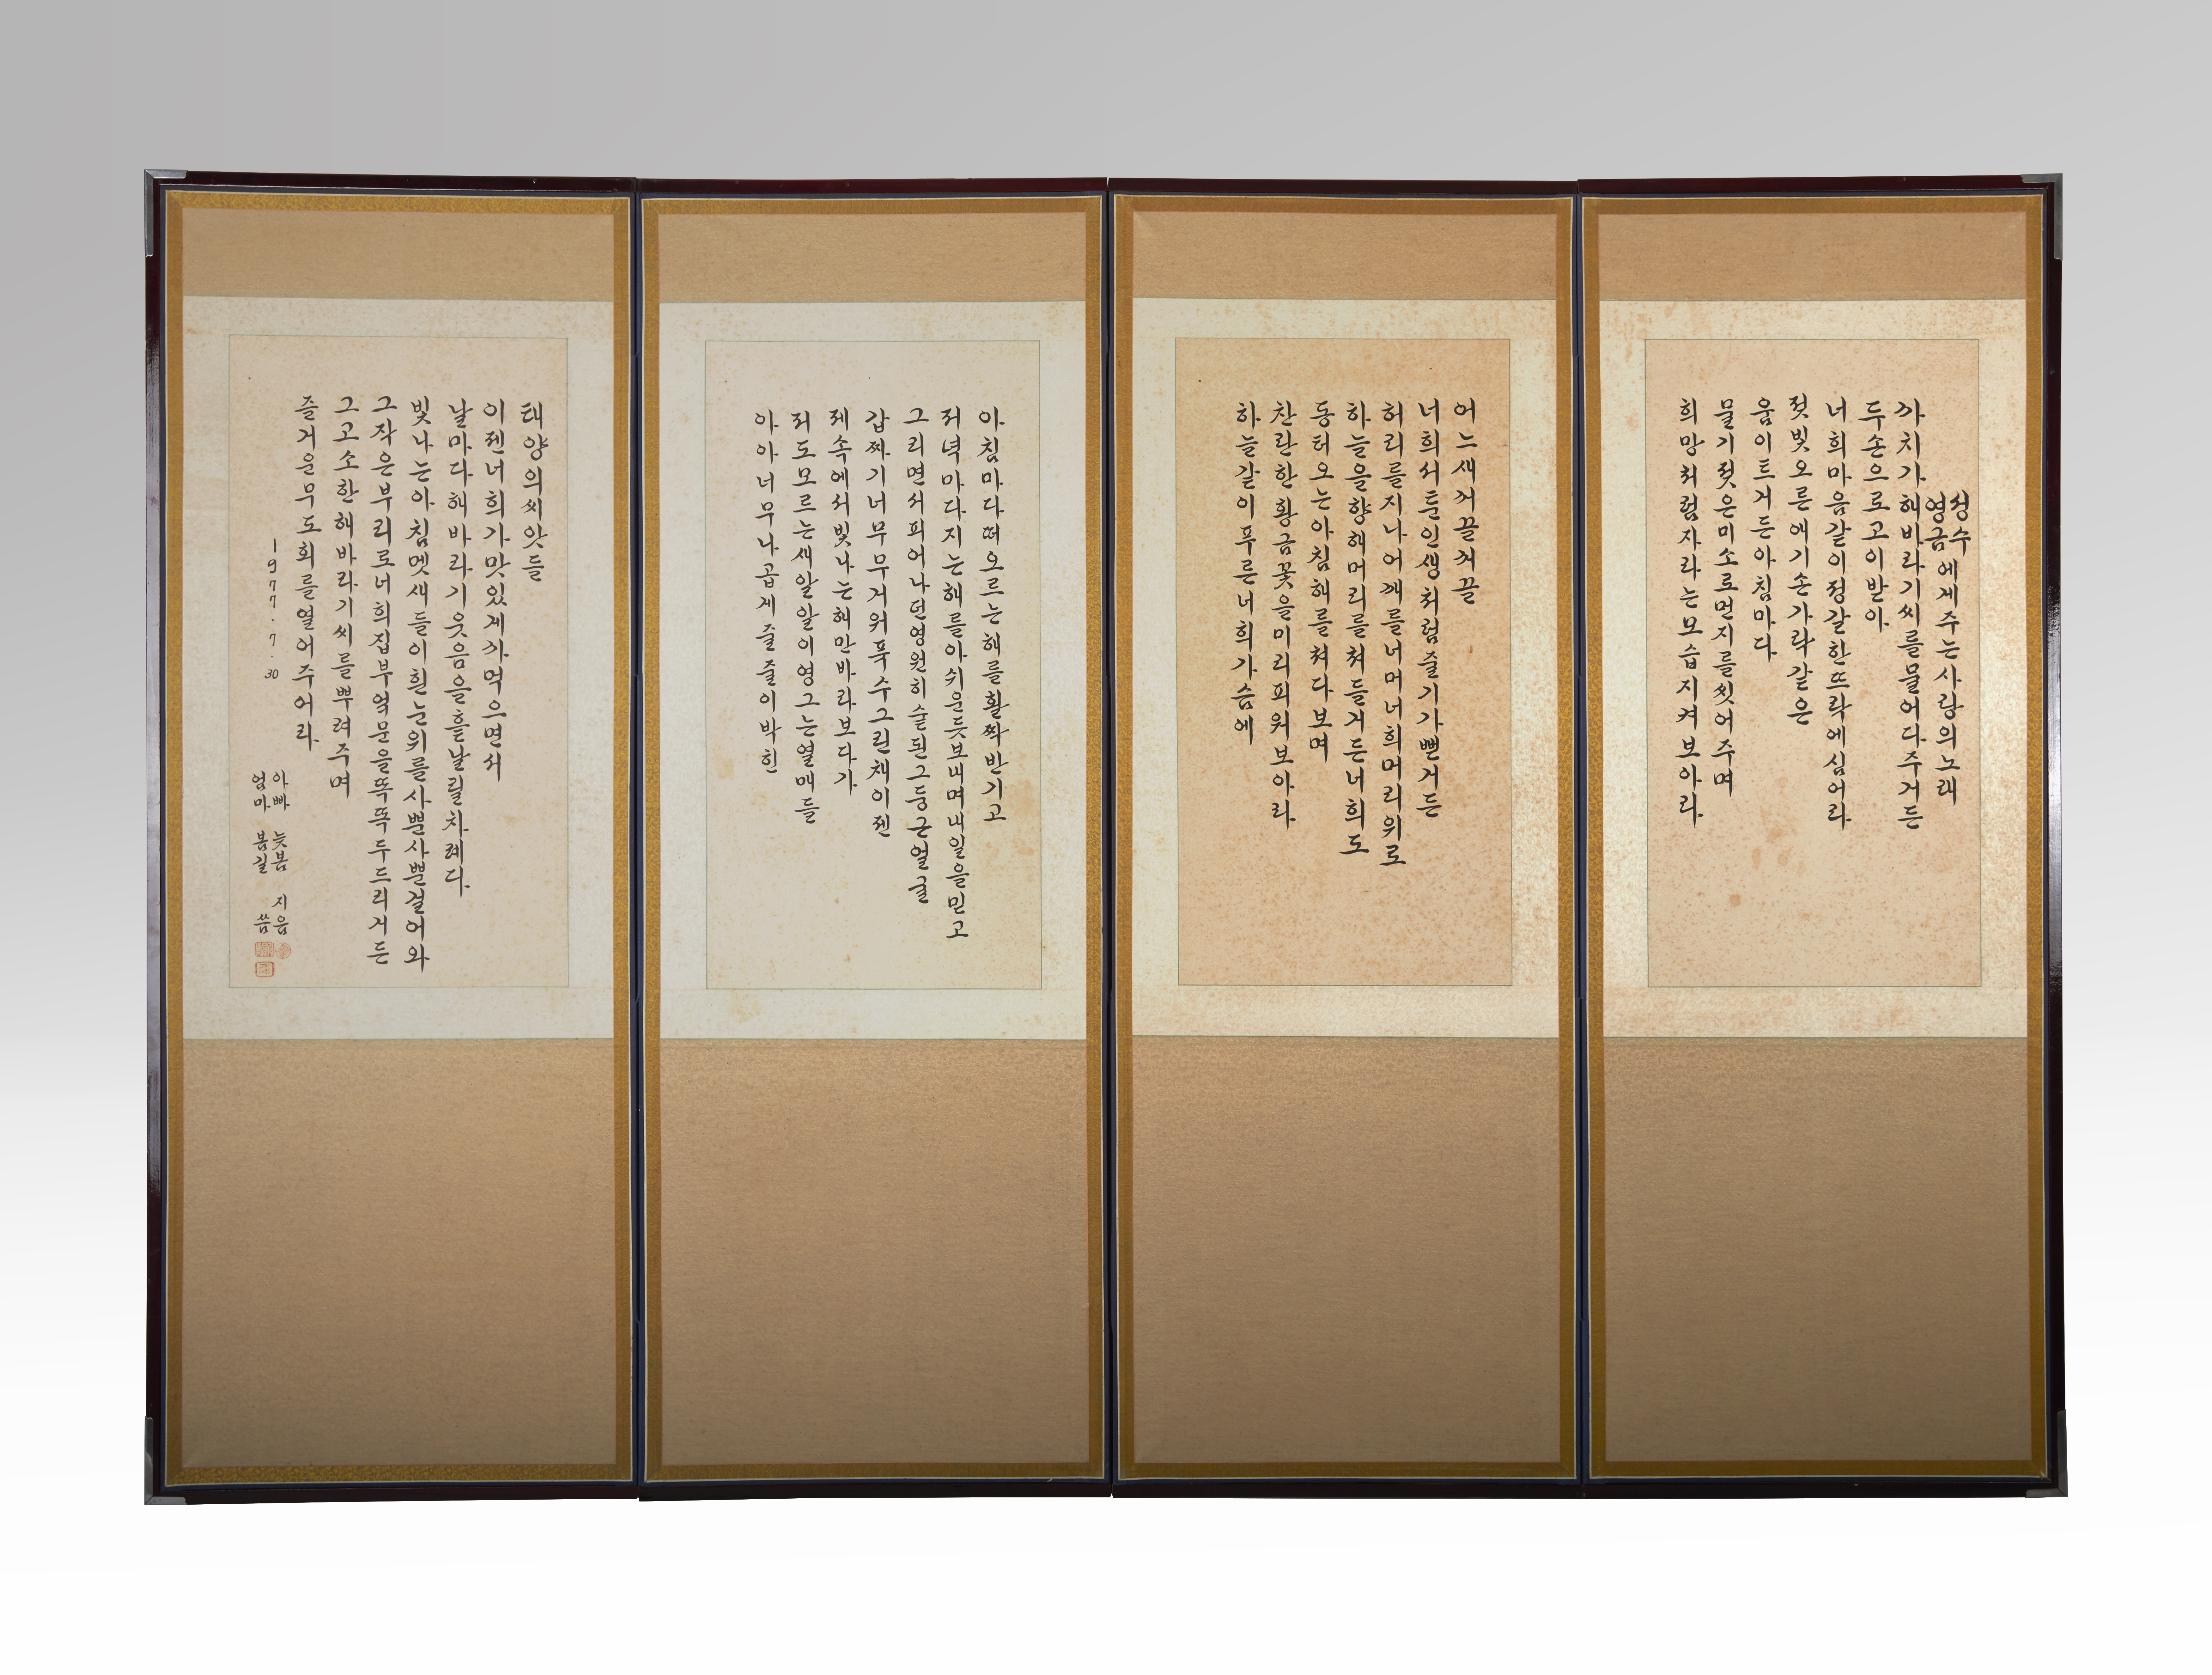 성수
영금에게주는사랑의노래
까치가해바라기씨를물어다주거든
두손으로고이받아
너희마음같이정갈한뜨락에심어라
젖빛오른애기손가락같은
움이트거든아침마다
물기젖은미소로먼지를씻어주며
희망처럼자라는모습지켜보아라
어느새꺼끌꺼끌
너희서툰인생처럼줄기가뻗거든
허리를지나어깨를너머너희머리위로
하늘을향해머리를쳐들거든너희도
동터오는아침해를쳐다보며
찬란한황금꽃을미리피워보아라
하늘같이푸른너희가슴에
아침마다떠오르는해를활짝반기고
저녁마다지는해를아쉬운듯보내며내일을믿고
그리면서피어나던영원히술된그둥근얼굴
갑짜기너무무거워푹수그린채이젠
제속에서빛나는해만바라보다가
저도모르는새알알이영그는열매들
아아너무나곱게줄줄이박힌
태양의씨앗들
이젠너희가맛있게까먹으면서
날마다해바라기웃음을흩날릴차례다
빛나는아침멧새들이흰눈위를사뿐사뿐걸어와
그작은부리로너희집부엌문을똑똑두드리거든
그고소한해바라기씨를뿌려주며
즐거운무도회를열어주어라
1977.7.30
아빠 늦봄 지음
엄마 봄길 씀